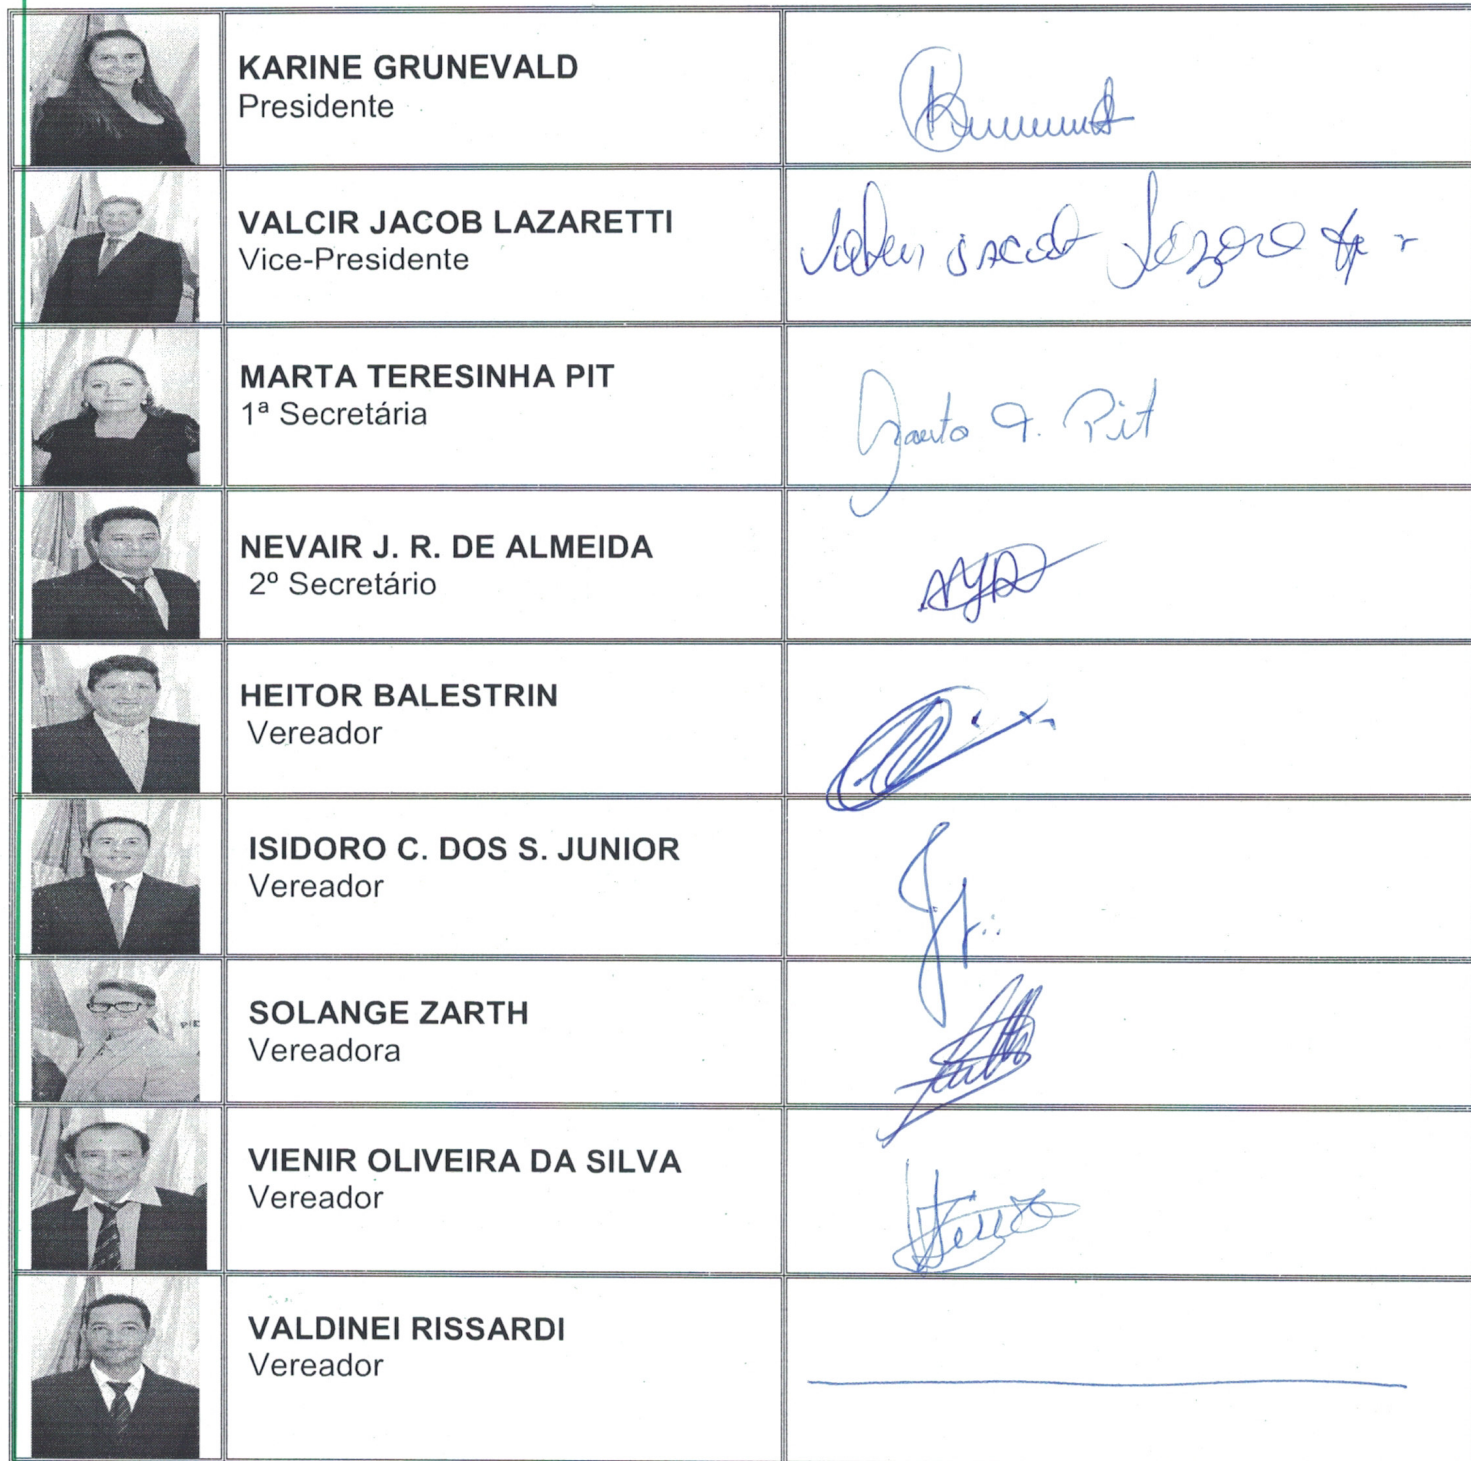 KARINE GRUNEVALD
Presidente
VALCIR JACOB LAZARETTI
Vice-Presidente
Jacob
MARTA TERESINHA PIT
1ª Secretária
T. Pit
NEVAIR J. R. DE ALMEIDA
2º Secretário
HEITOR BALESTRIN
Vereador
ISIDORO C. DOS S. JUNIOR
Vereador
SOLANGE ZARTH
Vereadora
VIENIR OLIVEIRA DA SILVA
Vereador
VALDINEI RISSARDI
Vereador